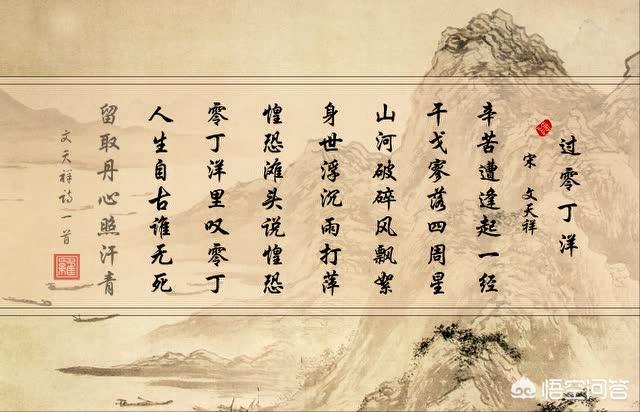 过零丁洋
宋 文天祥
辛苦遭逢起一经
干戈寥落四周星
山河破碎风飘絮
身世浮沉雨打萍
惶恐滩头说惶恐
零丁洋里叹零丁
人生自古谁无死
留取丹心照汗青
文天祥诗一首
悟空问答